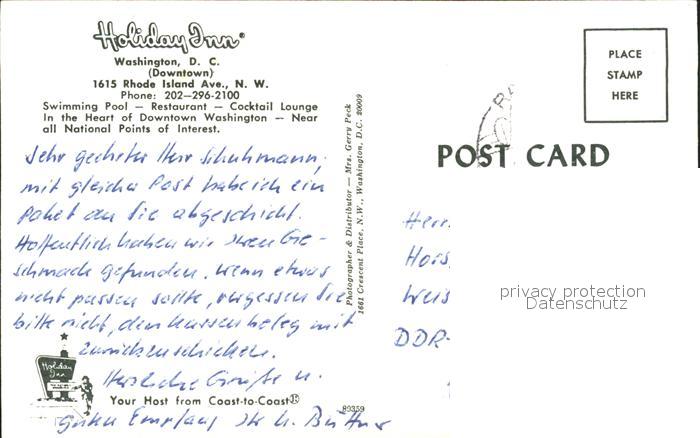 Holiday Inn®
Washington, D. C.
(Downtown)
1615 Rhode Island Ave., N. W.
Phone: 202—296-2100
Swimming Pool — Restaurant — Cocktail Lounge
In the Heart of Downtown Washington — Near
all National Points of Interest.
Sehr geehrter Herr Schuhmann,
mit gleicher Post habe ich ein
Paket an Sie abgeschickt.
Hoffentlich haben wir Ihren Ge-
schmack gefunden, wenn etwas
nicht passen sollte, vergessen Sie
bitte nicht, den Kassenbeleg mit
zurückzuschicken.
Herzliche Grüße u.
guten Empfang Ihr
Holiday Inn
Your Host from Coast-to-Coast®
89359
Photographer & Distributor — Mrs. Gerry Peck
1661 Crescent Place, N.W., Washington, D.C. 20009
POST CARD
PLACE
STAMP
HERE
Herr
Hors
Weis
DDR-
privacy protection
Datenschutz